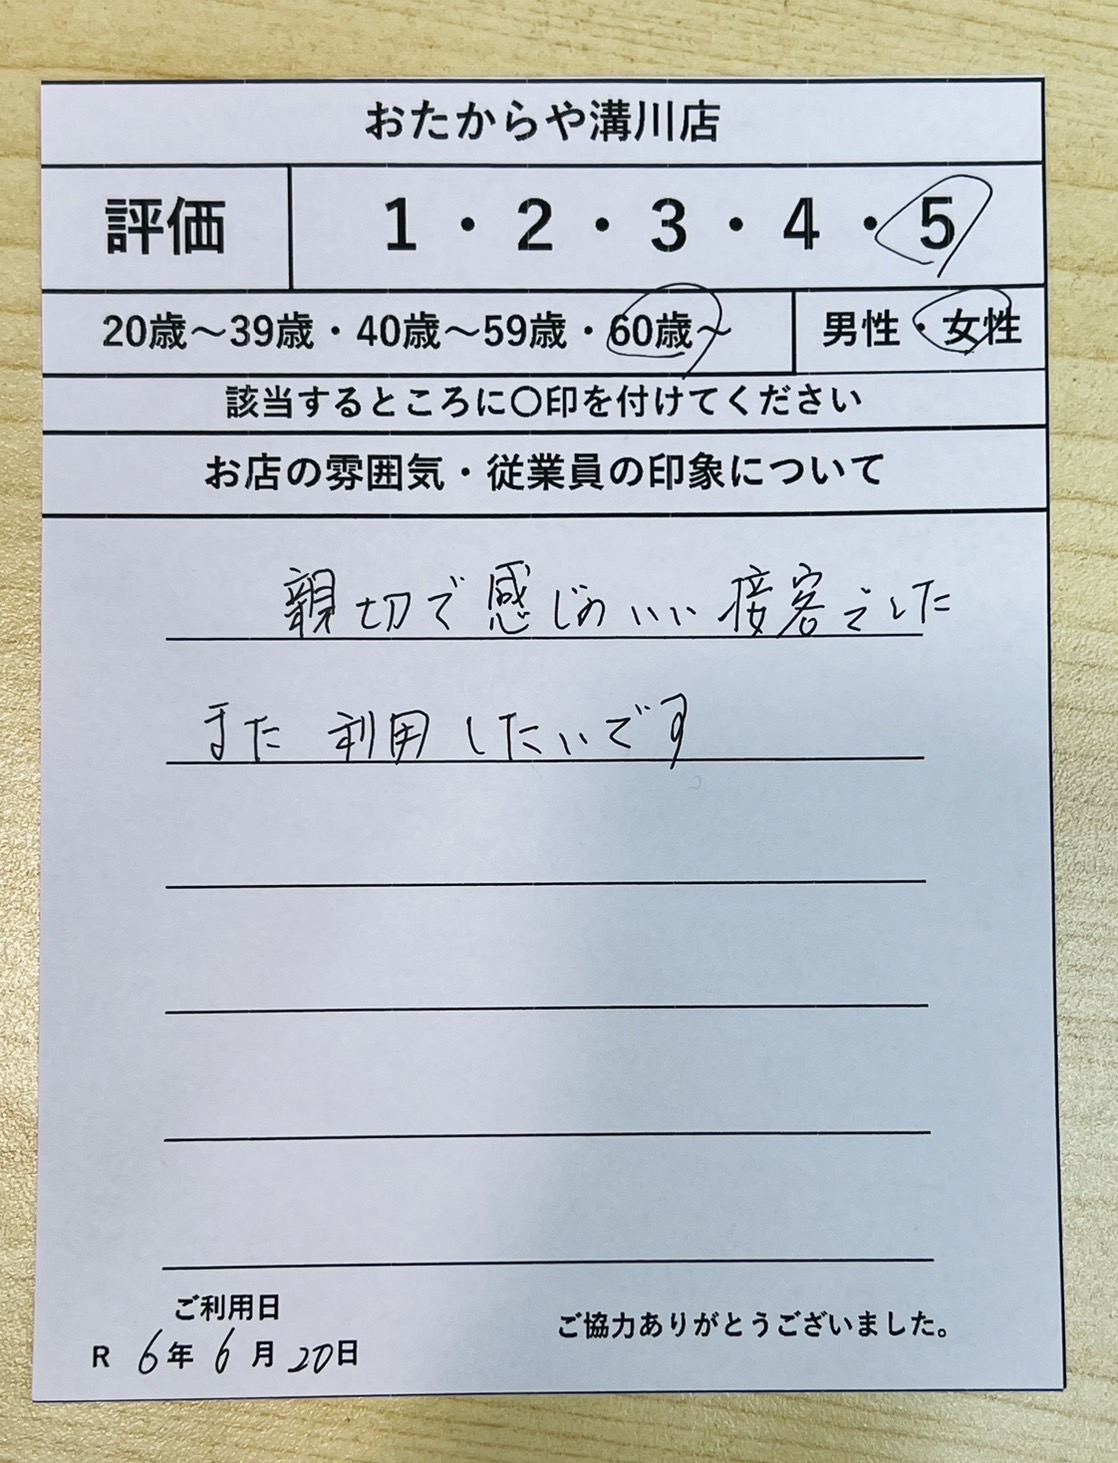 おたからや溝川店
評価 1・2・3・4・5
20歳～39歳・40歳～59歳・60歳～ 男性・女性
該当するところに〇印を付けてください
お店の雰囲気・従業員の印象について
親切で感じのいい接客でした
また利用したいです
ご利用日
R 6年 6月 20日
ご協力ありがとうございました。